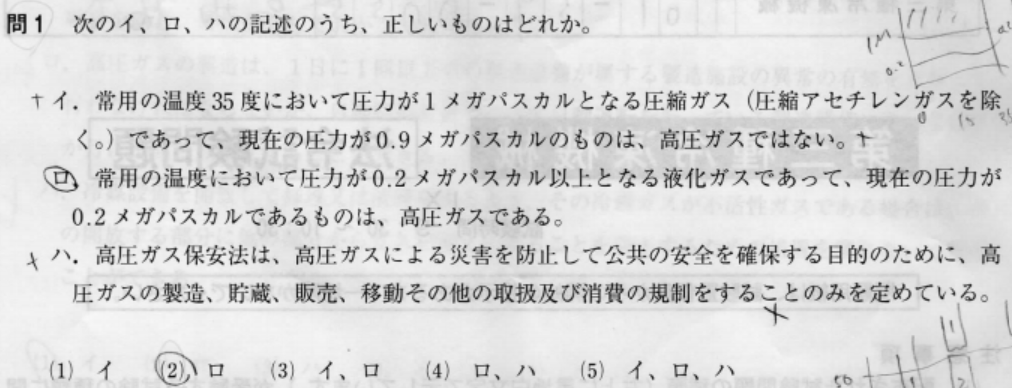 問1 次のイ、ロ、ハの記述のうち、正しいものはどれか。
イ．常用の温度35度において圧力が1メガパスカルとなる圧縮ガス（圧縮アセチレンガスを除
く。）であって、現在の圧力が0.9メガパスカルのものは、高圧ガスではない。
ロ．常用の温度において圧力が0.2メガパスカル以上となる液化ガスであって、現在の圧力が
0.2メガパスカルであるものは、高圧ガスである。
ハ．高圧ガス保安法は、高圧ガスによる災害を防止して公共の安全を確保する目的のために、高
圧ガスの製造、貯蔵、販売、移動その他の取扱及び消費の規制をすることのみを定めている。
(1) イ (2) ロ (3) イ、ロ (4) ロ、ハ (5) イ、ロ、ハ